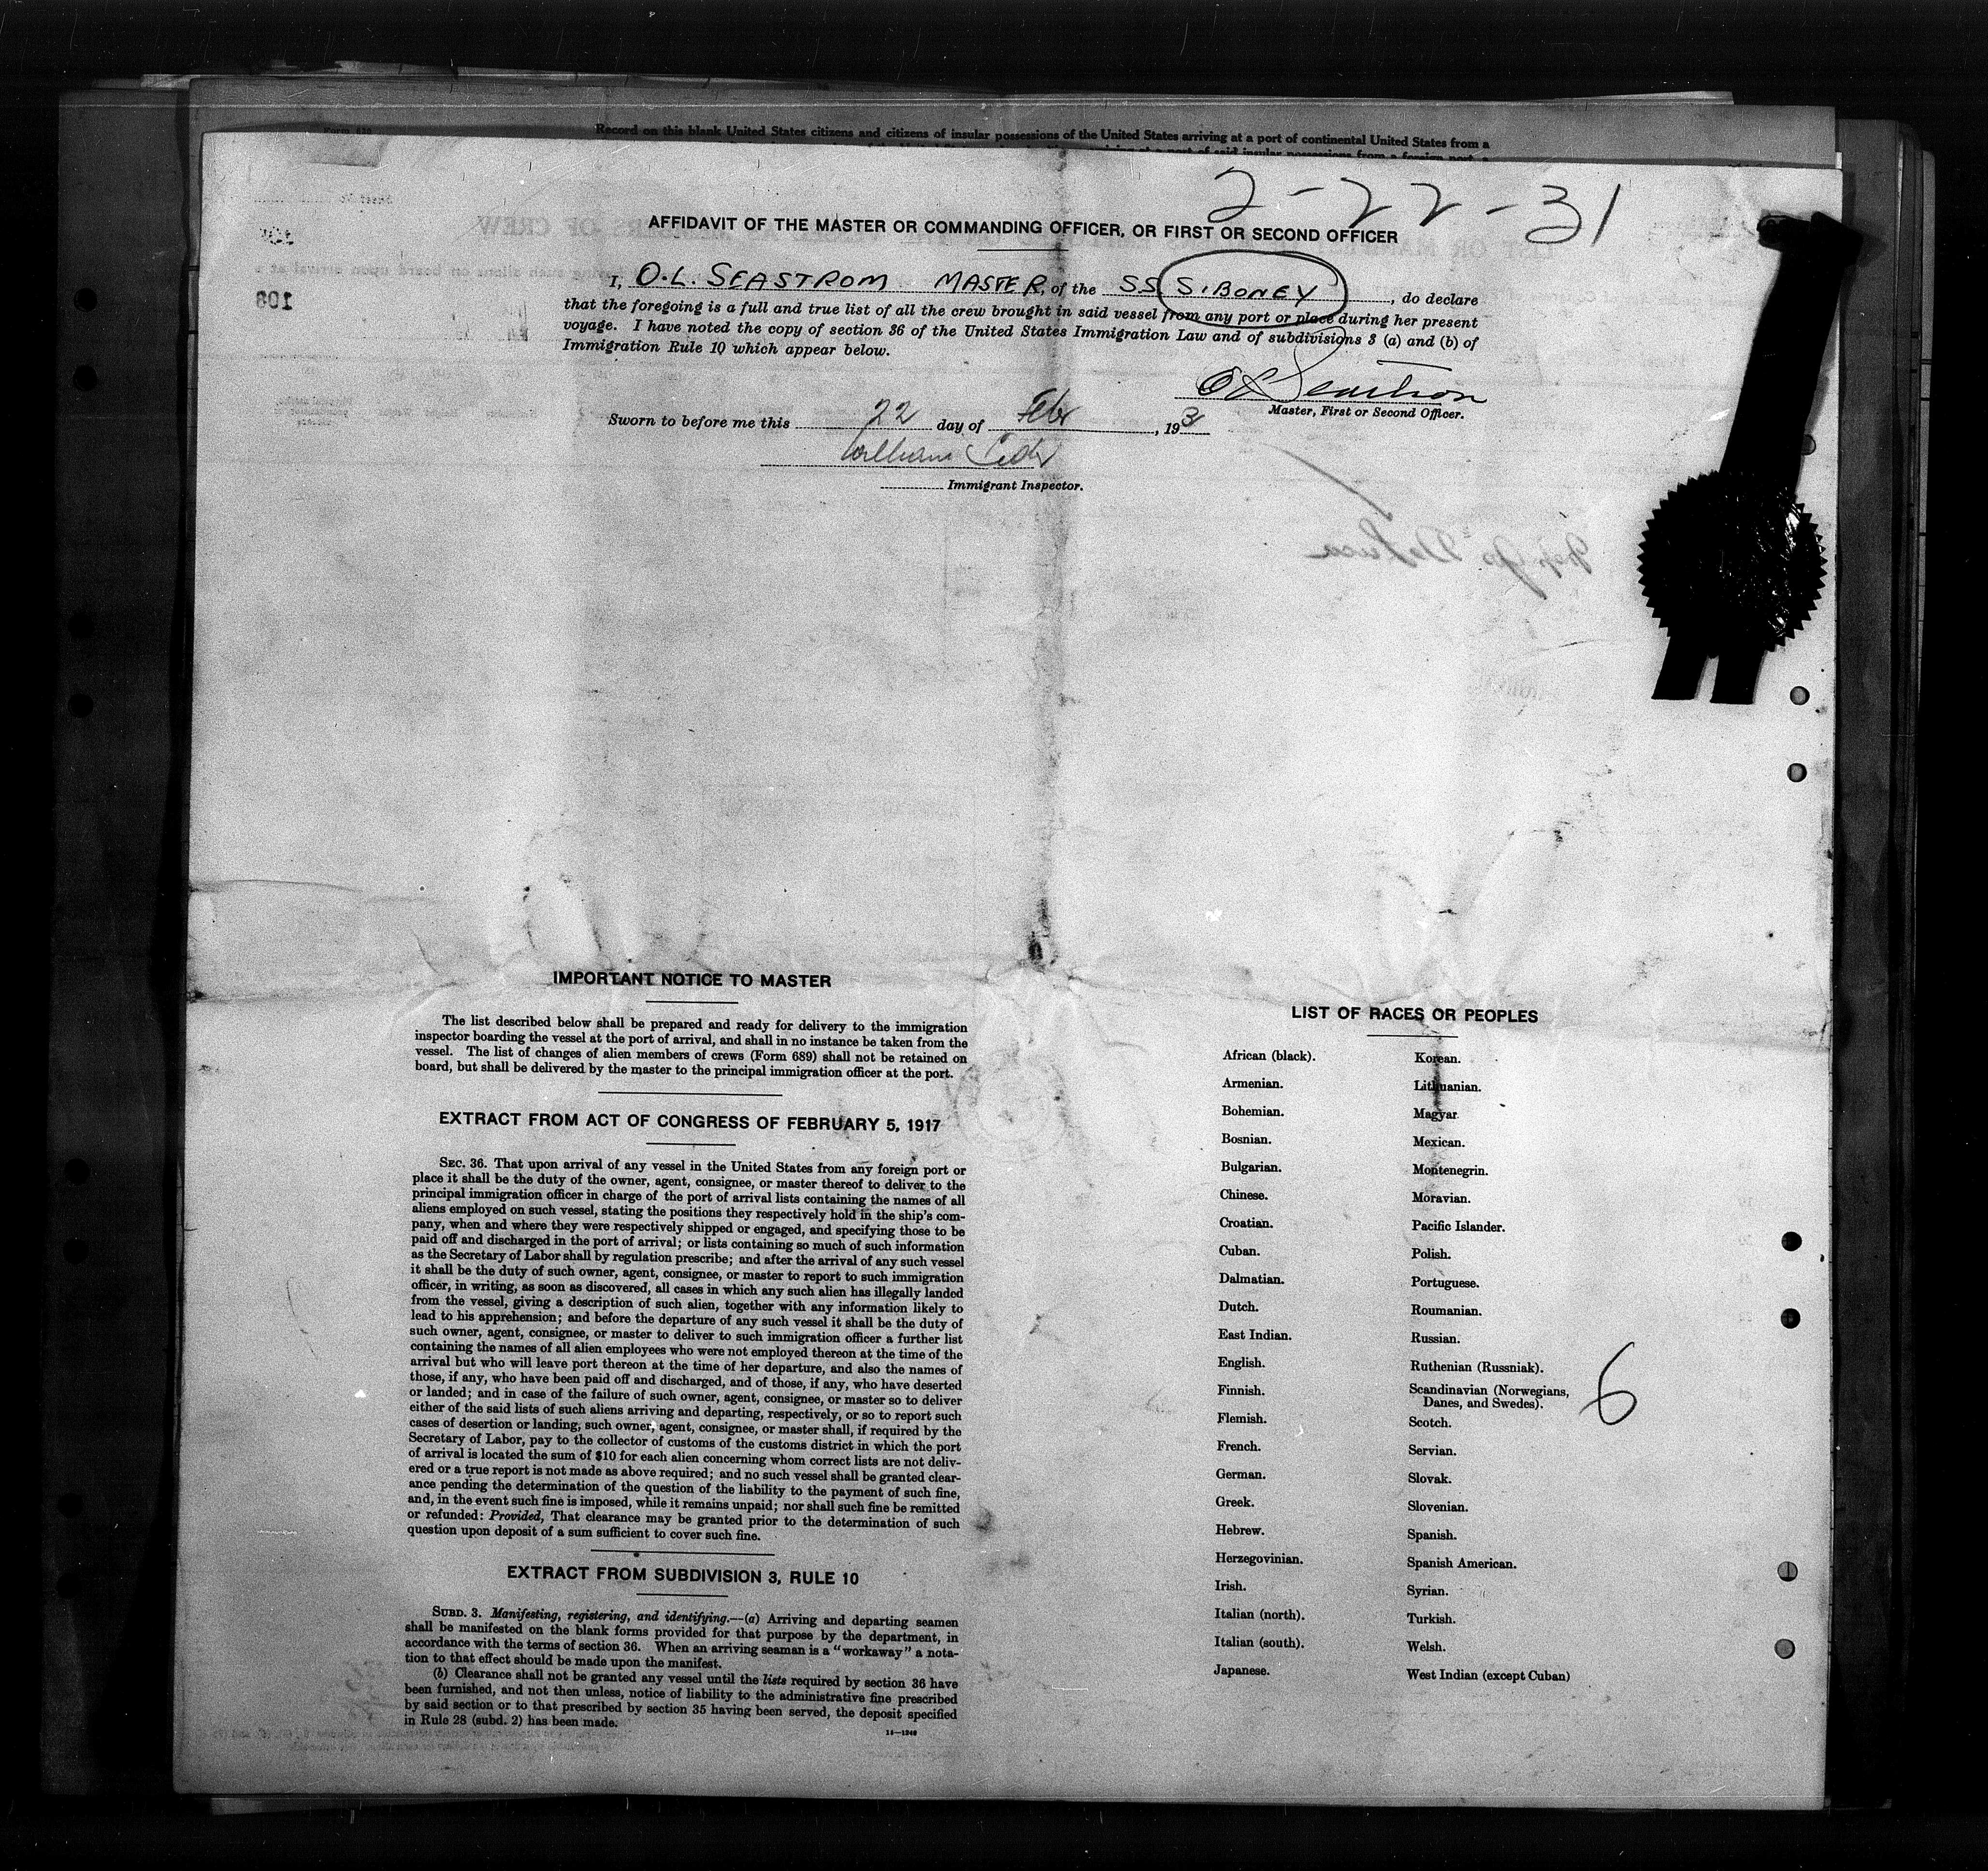 Record on this blank United States citizens and citizens of insular possessions of the United States arriving at a port of continental United States from a
2-22-31
AFFIDAVIT OF THE MASTER OR COMMANDING OFFICER, OR FIRST OR SECOND OFFICER
I, O.L. SEASTROM MASTER, of the SS SIBONEY, do declare
that the foregoing is a full and true list of all the crew brought in said vessel from any port or place during her present
voyage. I have noted the copy of section 36 of the United States Immigration Law and of subdivisions 3 (a) and (b) of
Immigration Rule 10 which appear below.
O L Seastrom
Master, First or Second Officer.
Sworn to before me this 22 day of Febr, 193
William
Immigrant Inspector.
IMPORTANT NOTICE TO MASTER
The list described below shall be prepared and ready for delivery to the immigration
inspector boarding the vessel at the port of arrival, and shall in no instance be taken from the
vessel. The list of changes of alien members of crews (Form 689) shall not be retained on
board, but shall be delivered by the master to the principal immigration officer at the port.
EXTRACT FROM ACT OF CONGRESS OF FEBRUARY 5, 1917
SEC. 36. That upon arrival of any vessel in the United States from any foreign port or
place it shall be the duty of the owner, agent, consignee, or master thereof to deliver to the
principal immigration officer in charge of the port of arrival lists containing the names of all
aliens employed on such vessel, stating the positions they respectively hold in the ship's com-
pany, when and where they were respectively shipped or engaged, and specifying those to be
paid off and discharged in the port of arrival; or lists containing so much of such information
as the Secretary of Labor shall by regulation prescribe; and after the arrival of any such vessel
it shall be the duty of such owner, agent, consignee, or master to report to such immigration
officer, in writing, as soon as discovered, all cases in which any such alien has illegally landed
from the vessel, giving a description of such alien, together with any information likely to
lead to his apprehension; and before the departure of any such vessel it shall be the duty of
such owner, agent, consignee, or master to deliver to such immigration officer a further list
containing the names of all alien employees who were not employed thereon at the time of the
arrival but who will leave port thereon at the time of her departure, and also the names of
those, if any, who have been paid off and discharged, and of those, if any, who have deserted
or landed; and in case of the failure of such owner, agent, consignee, or master so to deliver
either of the said lists of such aliens arriving and departing, respectively, or so to report such
cases of desertion or landing, such owner, agent, consignee, or master shall, if required by the
Secretary of Labor, pay to the collector of customs of the customs district in which the port
of arrival is located the sum of $10 for each alien concerning whom correct lists are not deliv-
ered or a true report is not made as above required; and no such vessel shall be granted clear-
ance pending the determination of the question of the liability to the payment of such fine,
and, in the event such fine is imposed, while it remains unpaid; nor shall such fine be remitted
or refunded: Provided, That clearance may be granted prior to the determination of such
question upon deposit of a sum sufficient to cover such fine.
EXTRACT FROM SUBDIVISION 3, RULE 10
SUBD. 3. Manifesting, registering, and identifying.—(a) Arriving and departing seamen
shall be manifested on the blank forms provided for that purpose by the department, in
accordance with the terms of section 36. When an arriving seaman is a "workaway" a nota-
tion to that effect should be made upon the manifest.
(b) Clearance shall not be granted any vessel until the lists required by section 36 have
been furnished, and not then unless, notice of liability to the administrative fine prescribed
by said section or to that prescribed by section 35 having been served, the deposit specified
in Rule 28 (subd. 2) has been made.
14—1240
LIST OF RACES OR PEOPLES
African (black).
Armenian.
Bohemian.
Bosnian.
Bulgarian.
Chinese.
Croatian.
Cuban.
Dalmatian.
Dutch.
East Indian.
English.
Finnish.
Flemish.
French.
German.
Greek.
Hebrew.
Herzegovinian.
Irish.
Italian (north).
Italian (south).
Japanese.
Korean.
Lithuanian.
Magyar.
Mexican.
Montenegrin.
Moravian.
Pacific Islander.
Polish.
Portuguese.
Roumanian.
Russian.
Ruthenian (Russniak).
Scandinavian (Norwegians,
Danes, and Swedes).
Scotch.
Servian.
Slovak.
Slovenian.
Spanish.
Spanish American.
Syrian.
Turkish.
Welsh.
West Indian (except Cuban)
6